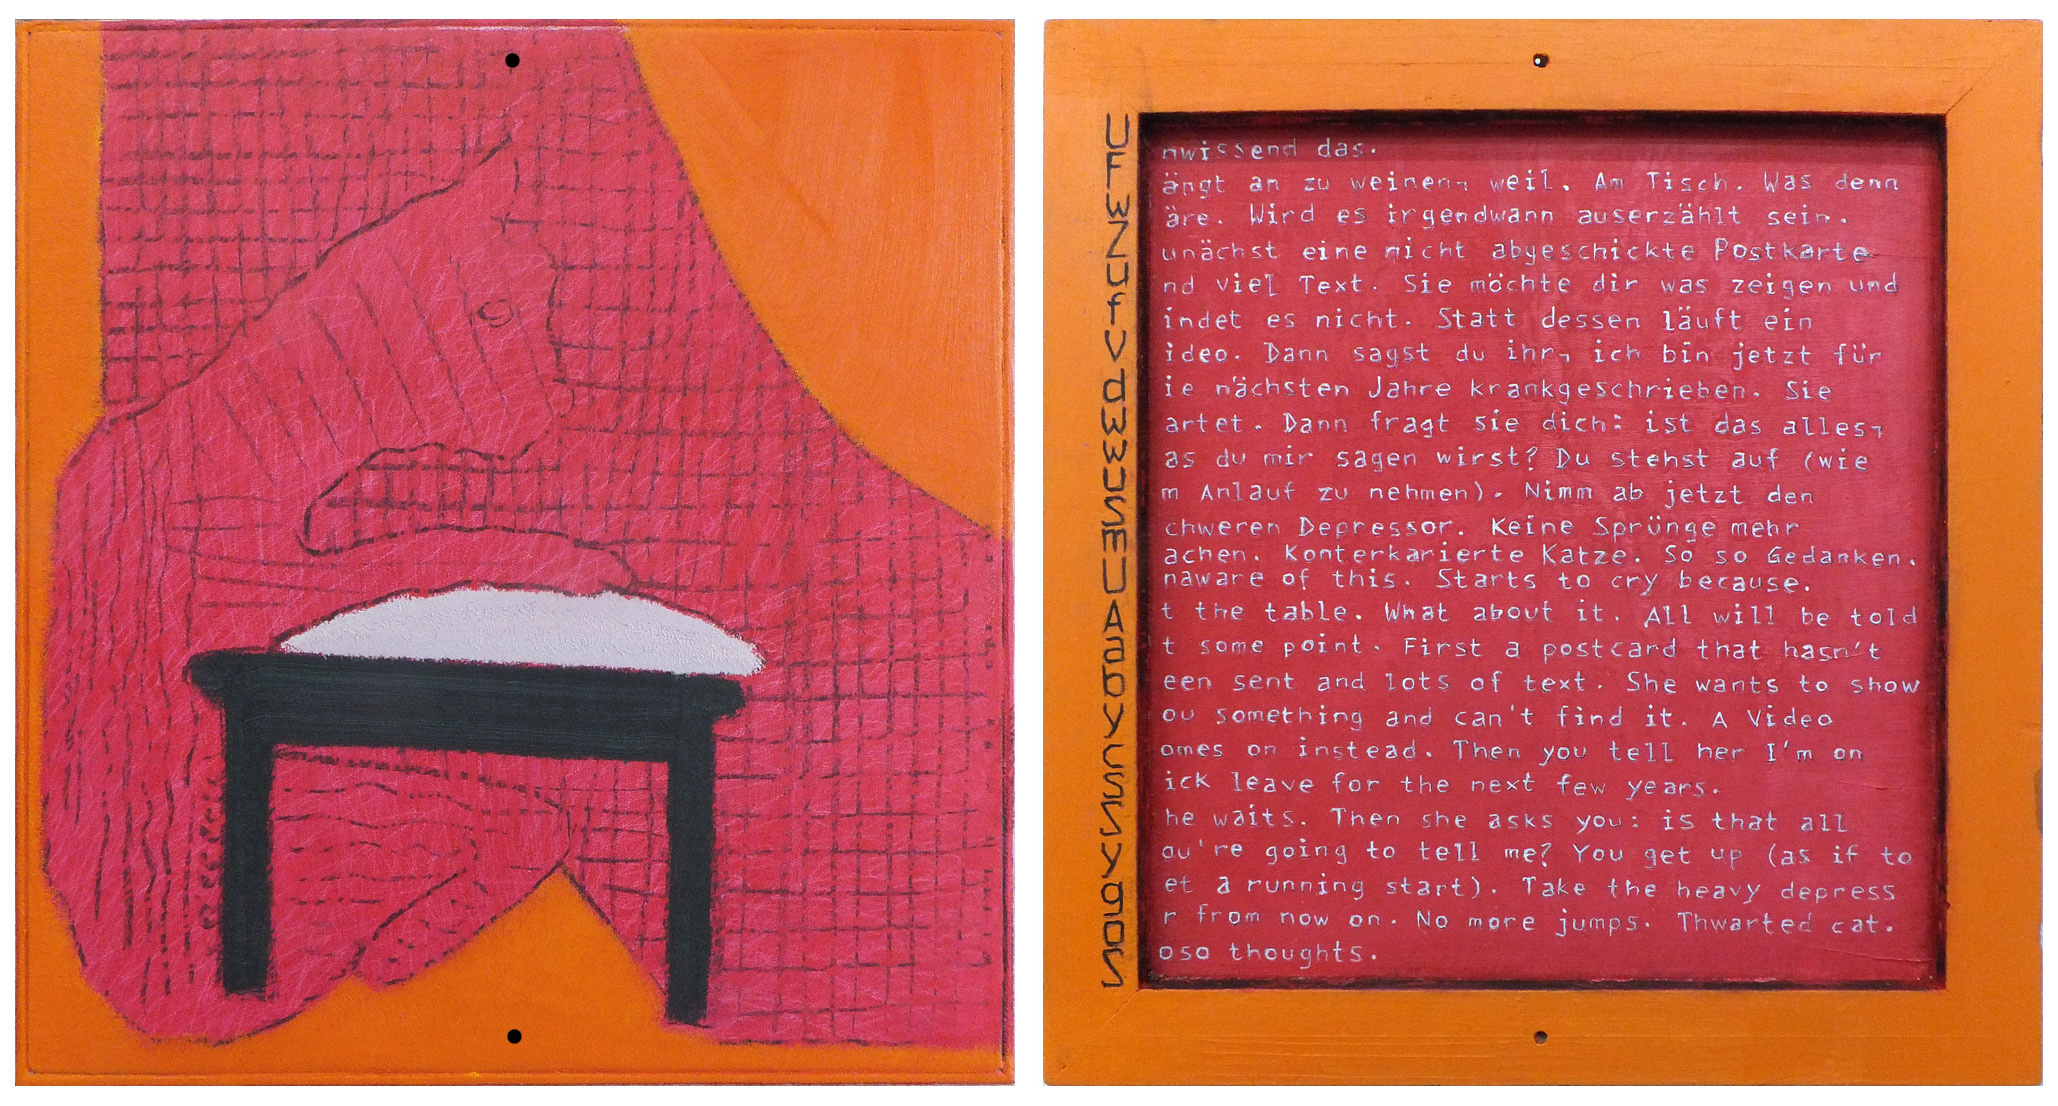 Unwissend das.
Fängt an zu weinen, weil. Am Tisch. Was denn
wäre. Wird es irgendwann auserzählt sein.
Zunächst eine nicht abgeschickte Postkarte
und viel Text. Sie möchte dir was zeigen und
findet es nicht. Statt dessen läuft ein
Video. Dann sagst du ihr, ich bin jetzt für
die nächsten Jahre krankgeschrieben. Sie
wartet. Dann fragt sie dich: ist das alles,
was du mir sagen wirst? Du stehst auf (wie
um Anlauf zu nehmen). Nimm ab jetzt den
schweren Depressor. Keine Sprünge mehr
machen. Konterkarierte Katze. So so Gedanken.
Unaware of this. Starts to cry because.
At the table. What about it. All will be told
at some point. First a postcard that hasn't
been sent and lots of text. She wants to show
you something and can't find it. A Video
comes on instead. Then you tell her I'm on
sick leave for the next few years.
She waits. Then she asks you: is that all
you're going to tell me? You get up (as if to
get a running start). Take the heavy depress
or from now on. No more jumps. Thwarted cat.
Soso thoughts.